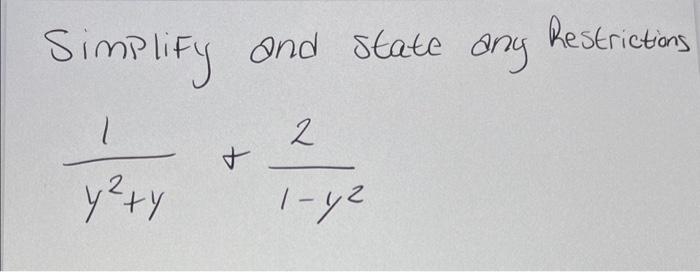 Simplify and state any Restrictions
1/(y²+y) + 2/(1-y²)